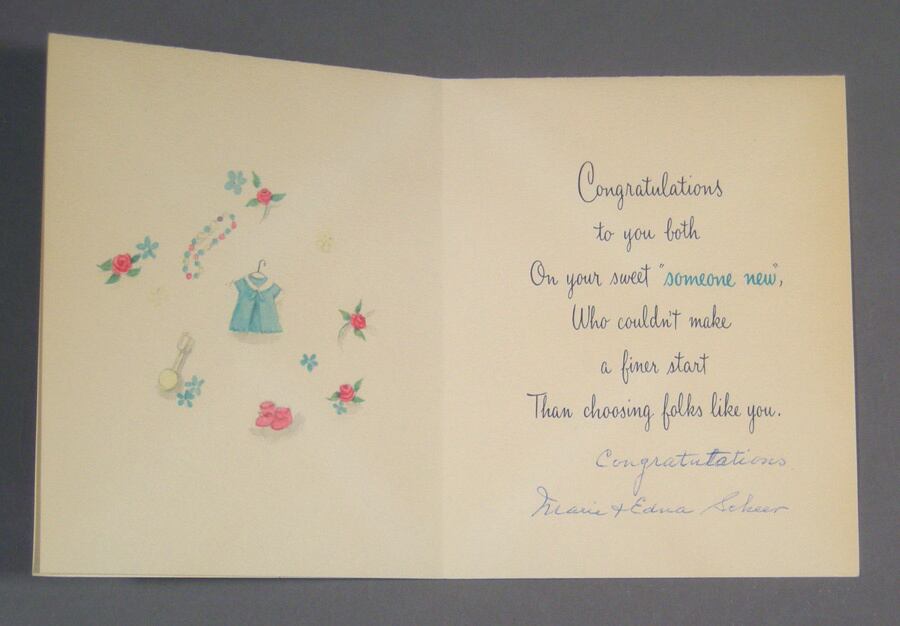 Congratulations
to you both
On your sweet "someone new",
Who couldn't make
a finer start
Than choosing folks like you.
Congratutations
Marie + Edna Scheer